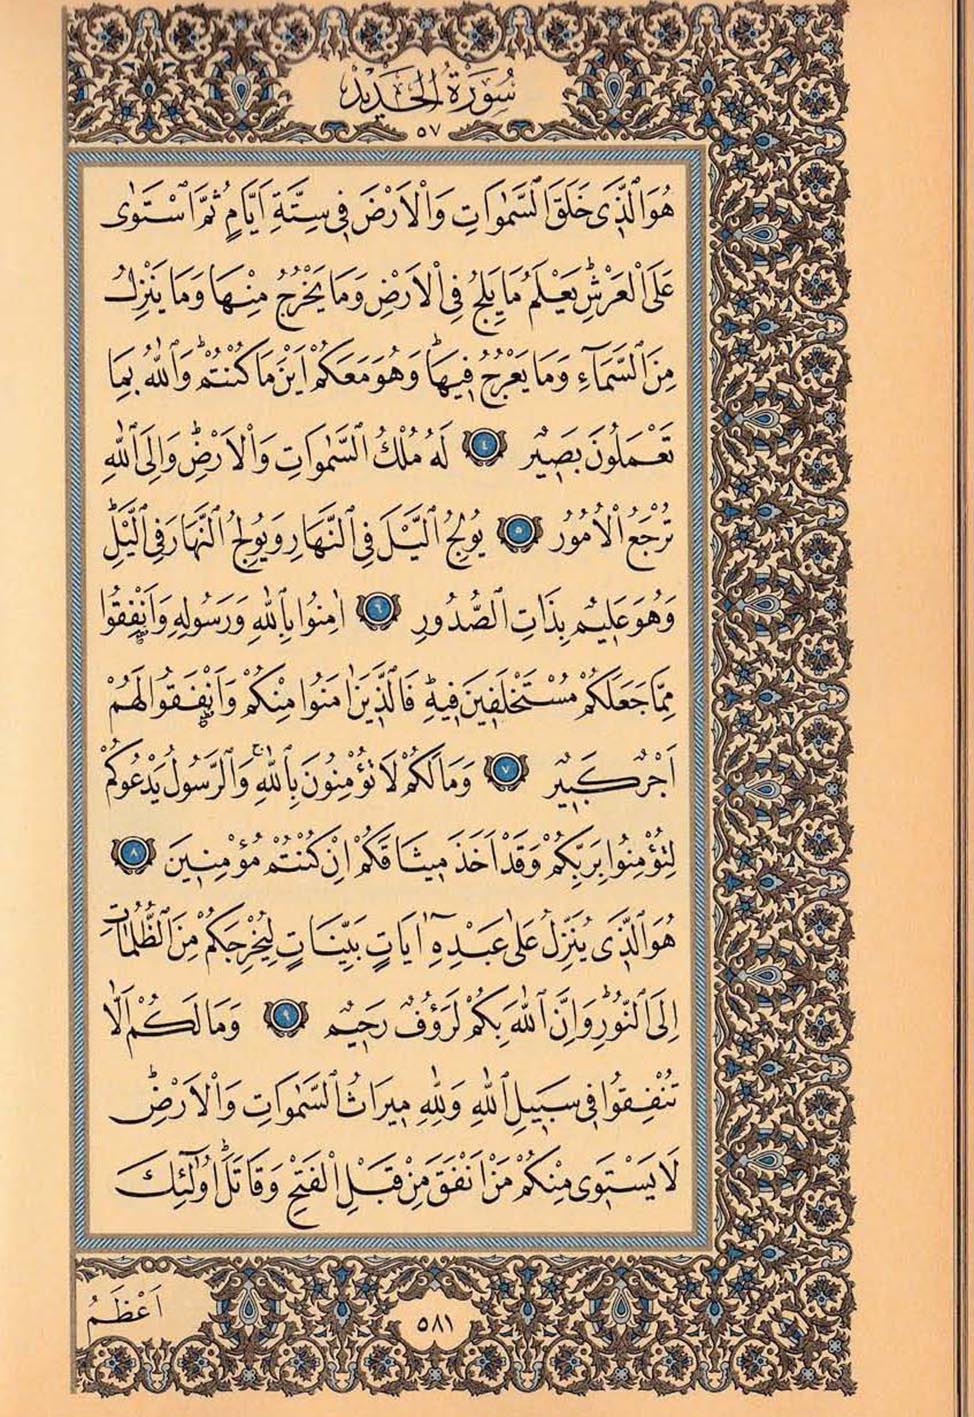 سُورَةُ الْحَدِيدِ
٥٧
هُوَ الَّذ۪ي خَلَقَ السَّمٰوَاتِ وَالْاَرْضَ ف۪ي سِتَّةِ اَيَّامٍ ثُمَّ اسْتَوٰى
عَلَى الْعَرْشِۜ يَعْلَمُ مَا يَلِجُ فِي الْاَرْضِ وَمَا يَخْرُجُ مِنْهَا وَمَا يَنْزِلُ
مِنَ السَّمَٓاءِ وَمَا يَعْرُجُ ف۪يهَاۜ وَهُوَ مَعَكُمْ اَيْنَ مَا كُنْتُمْۜ وَاللّٰهُ بِمَا
تَعْمَلُونَ بَص۪يرٌ ٤ لَهُ مُلْكُ السَّمٰوَاتِ وَالْاَرْضِۜ وَاِلَى اللّٰهِ
تُرْجَعُ الْاُمُورُ ٥ يُولِجُ الَّيْلَ فِي النَّهَارِ وَيُولِجُ النَّهَارَ فِي الَّيْلِۜ
وَهُوَ عَل۪يمٌ بِذَاتِ الصُّدُورِ ٦ اٰمِنُوا بِاللّٰهِ وَرَسُولِه۪ وَاَنْفِقُوا
مِمَّا جَعَلَكُمْ مُسْتَخْلَف۪ينَ ف۪يهِۜ فَالَّذ۪ينَ اٰمَنُوا مِنْكُمْ وَاَنْفَقُوا لَهُمْ
اَجْرٌ كَب۪يرٌ ٧ وَمَا لَكُمْ لَا تُؤْمِنُونَ بِاللّٰهِۚ وَالرَّسُولُ يَدْعُوكُمْ
لِتُؤْمِنُوا بِرَبِّكُمْ وَقَدْ اَخَذَ م۪يثَاقَكُمْ اِنْ كُنْتُمْ مُؤْمِن۪ينَ ٨
هُوَ الَّذ۪ي يُنَزِّلُ عَلٰى عَبْدِه۪ٓ اٰيَاتٍ بَيِّنَاتٍ لِيُخْرِجَكُمْ مِنَ الظُّلُمَاتِ
اِلَى النُّورِۜ وَاِنَّ اللّٰهَ بِكُمْ لَرَؤُ۫فٌ رَح۪يمٌ ٩ وَمَا لَكُمْ اَلَّا
تُنْفِقُوا ف۪ي سَب۪يلِ اللّٰهِ وَلِلّٰهِ م۪يرَاثُ السَّمٰوَاتِ وَالْاَرْضِۜ
لَا يَسْتَو۪ي مِنْكُمْ مَنْ اَنْفَقَ مِنْ قَبْلِ الْفَتْحِ وَقَاتَلَۜ اُو۬لٰٓئِكَ
اَعْظَمُ
٥٨١